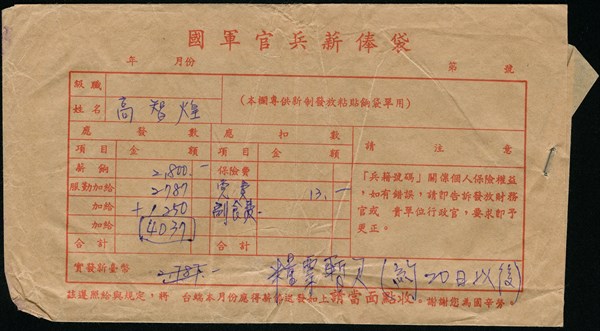 國軍官兵薪俸袋
年 月份 第 號
級職
姓名 高智煌 (本欄專供新制發放粘貼餉袋單用)
應發數 應扣數 請注意
項目 金額 項目 金額
薪餉 2,800.- 保險費
服勤加給 2787 電費 13.-
加給 +1250 副食費
加給 (4037)
合計 合計
「兵籍號碼」關係個人保險權益
,如有錯誤,請即告訴發放財務
官或 貴單位行政官,要求即予
更正。
實發新臺幣 糧票暫欠(約20日以後)
註遵照給與規定,將 台端本月份應停薪 發如上請當面點收。謝謝您為國辛勞。